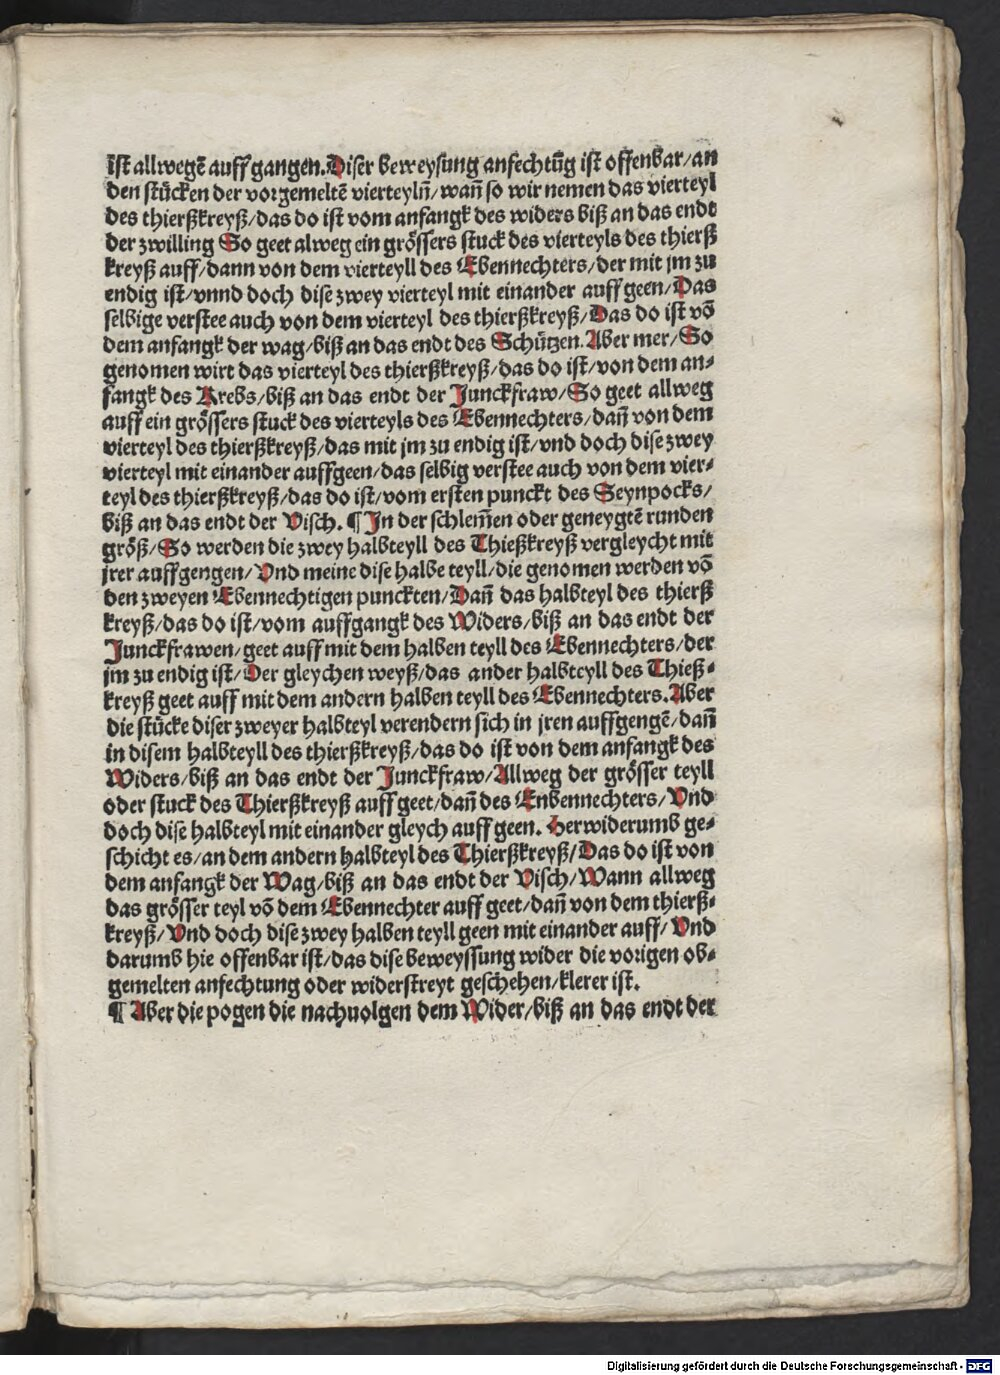 ist allwegē auff gangen. Diser beweysung anfechtūg ist offenbar/an
den stücken der vorgemeltē vierteyln̄/wan̄ so wir nemen das vierteyl
des thierßkreyß/das do ist vom anfangk des widers biß an das endt
der zwilling So geet alweg ein grössers stuck des vierteyls des thierß
kreyß auff/dann von dem vierteyll des Ebennechters/der mit jm zu
endig ist/vnnd doch dise zwey vierteyl mit einander auff geen/Das
selbige verstee auch von dem vierteyl des thierßkreyß/Das do ist vō
dem anfangk der wag/biß an das endt des Schützen. Aber mer/So
genomen wirt das vierteyl des thierßkreyß/das do ist/von dem an-
fangk des Krebs/biß an das endt der Junckfraw/So geet allweg
auff ein grössers stuck des vierteyls des Ebennechters/dan̄ von dem
vierteyl des thierßkreyß/das mit jm zu endig ist/vnd doch dise zwey
vierteyl mit einander auffgeen/das selbig verstee auch von dem vier-
teyl des thierßkreyß/das do ist/vom ersten punckt des Seynpocks/
biß an das endt der Visch. ¶ In der schlem̄en oder geneygtē runden
größ/So werden die zwey halbteyll des Thießkreyß vergleycht mit
jrer auffgengen/Vnd meine dise halbe teyll/die genomen werden vō
den zweyen Ebennechtigen punckten/Dan̄ das halbteyl des thierß
kreyß/das do ist/vom auffgangk des Widers/biß an das endt der
Junckfrawen/geet auff mit dem halben teyll des Ebennechters/der
jm zu endig ist/Der gleychen weyß/das ander halbteyll des Thieß-
kreyß geet auff mit dem andern halben teyll des Ebennechters. Aber
die stücke diser zweyer halbteyl verendern sich in jren auffgengē/dan̄
in disem halbteyll des thierßkreyß/das do ist von dem anfangk des
Widers/biß an das endt der Junckfraw/Allweg der grösser teyll
oder stuck des Thierßkreyß auff geet/dan̄ des Enbennechters/Vnd
doch dise halbteyl mit einander gleych auff geen. Herwiderumb ge-
schicht es/an dem andern halbteyl des Thierßkreyß/Das do ist von
dem anfangk der Wag/biß an das endt der Visch/Wann allweg
das grösser teyl vō dem Ebennechter auff geet/dan̄ von dem thierß-
kreyß/Vnd doch dise zwey halben teyll geen mit einander auff/Vnd
darumb hie offenbar ist/das dise beweyssung wider die vorigen ob-
gemelten anfechtung oder widerstreyt geschehen/klerer ist.
¶ Aber die pogen die nachuolgen dem Wider/biß an das endt der
Digitalisierung gefördert durch die Deutsche Forschungsgemeinschaft - DFG